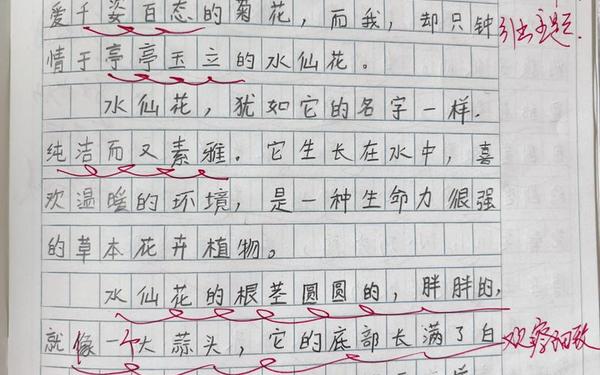 爱千姿百态的菊花，而我，却只钟
引出主题.
情于亭亭玉立的水仙花。
水仙花，犹如它的名字一样.
纯洁而又素雅.它生长在水中，喜
欢温暖的环境，是一种生命力很强
的草本花卉植物。
水仙花的根茎圆圆的，胖胖的，
就像一个大蒜头，它的底部长满了白
观察细致